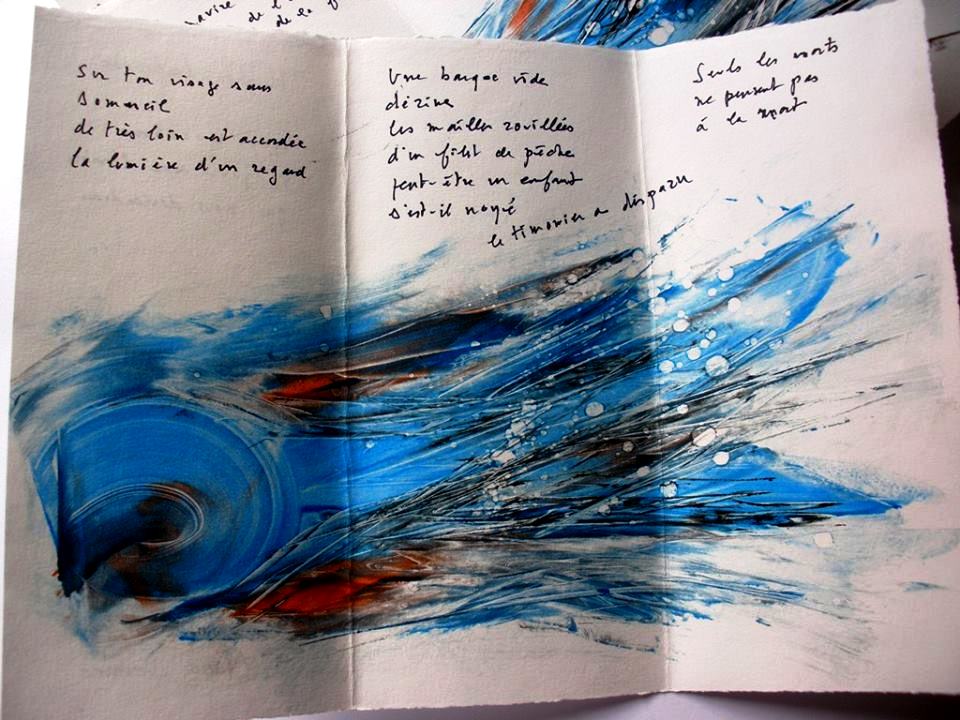 navire
de l'
de la f
Sur ton visage sans
sommeil
de très loin est accordée
la lumière d'un regard
Une barque vide
dérive
les mailles rouillées
d'un filet de pêche
peut-être un enfant
s'est-il noyé
le timonier a disparu
Seuls les morts
ne pensent pas
à la mort